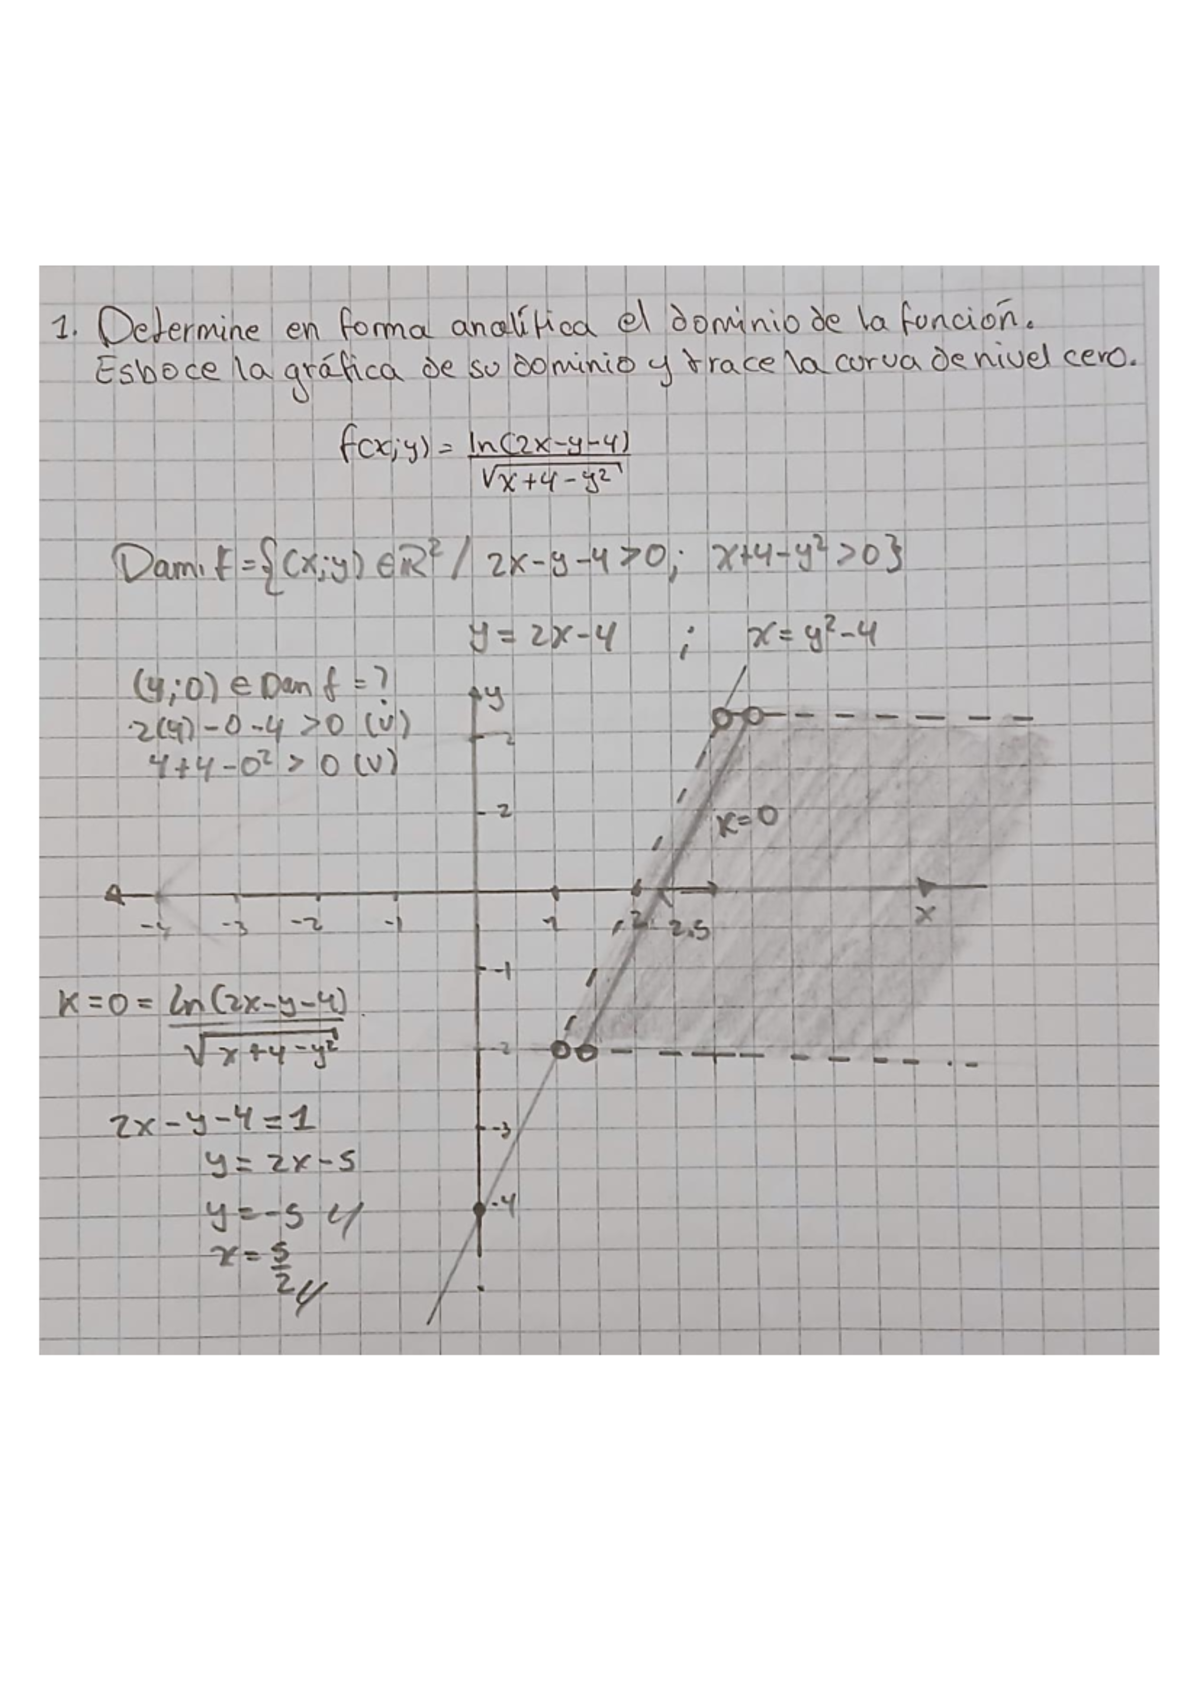 1. Determine en forma analítica el dominio de la función.
Esboce la gráfica de su dominio y trace la curva de nivel cero.
f(x;y) = ln(2x-y-4)
√x+4-y²
Dom. f = {(x;y) ∈ R² / 2x-y-4>0; x+4-y²>0}
y = 2x-4 ; x = y²-4
(4;0) ∈ Dom f = ?
2(4)-0-4 > 0 (v)
4+4-0² > 0 (v)
y
2
K=0
-4 -3 -2 -1 1 2 2.5 x
-1
K=0= ln(2x-y-4)
√x+4-y²
-2
2x-y-4=1
-3
y = 2x-5
y=-5
-4
x = 5
2